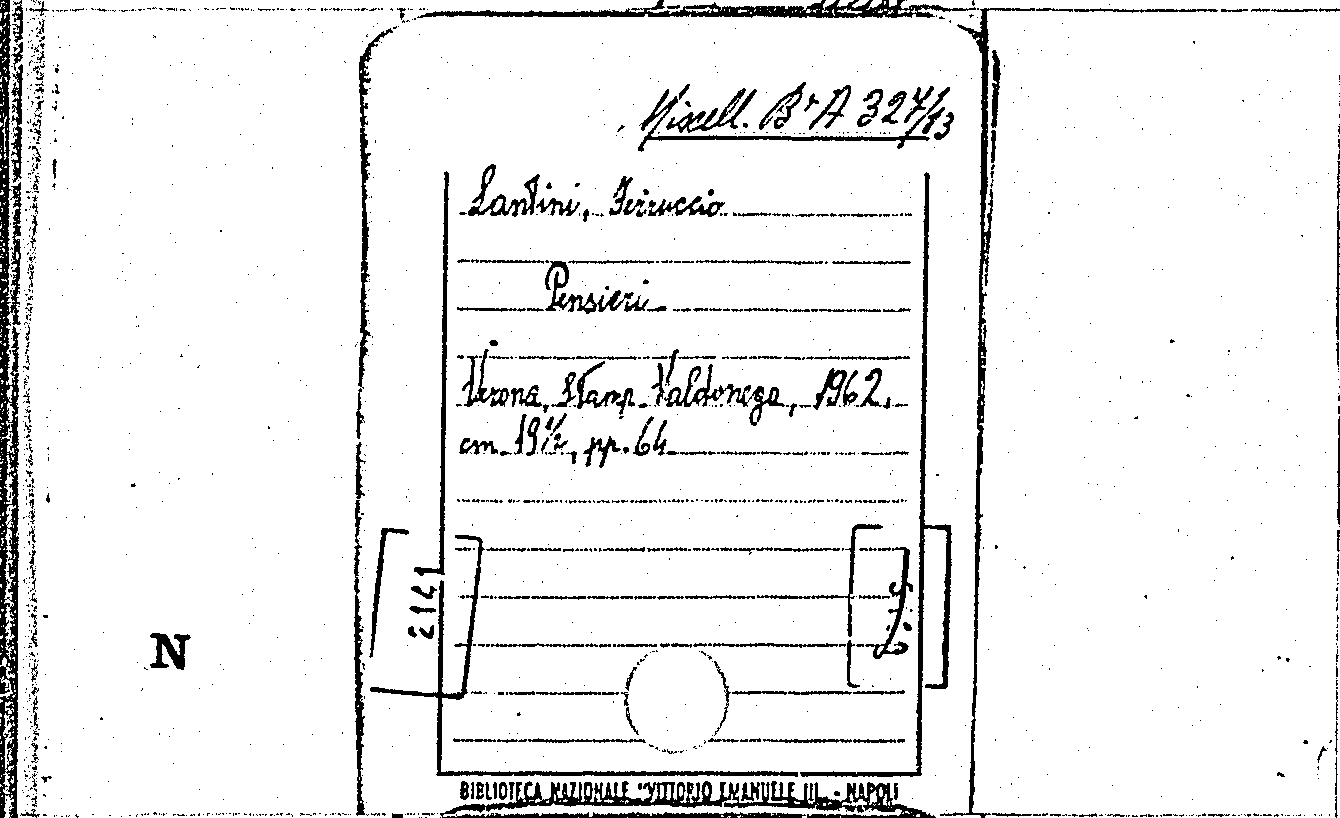 Miscell. Br A 327/13
Santini, Ferruccio
Pensieri
Verona, Stamp. Valdonega, 1962.
cm. 19 1/2, pp. 64
2141
N
BIBLIOTECA NAZIONALE "VITTORIO EMANUELE III" - NAPOLI